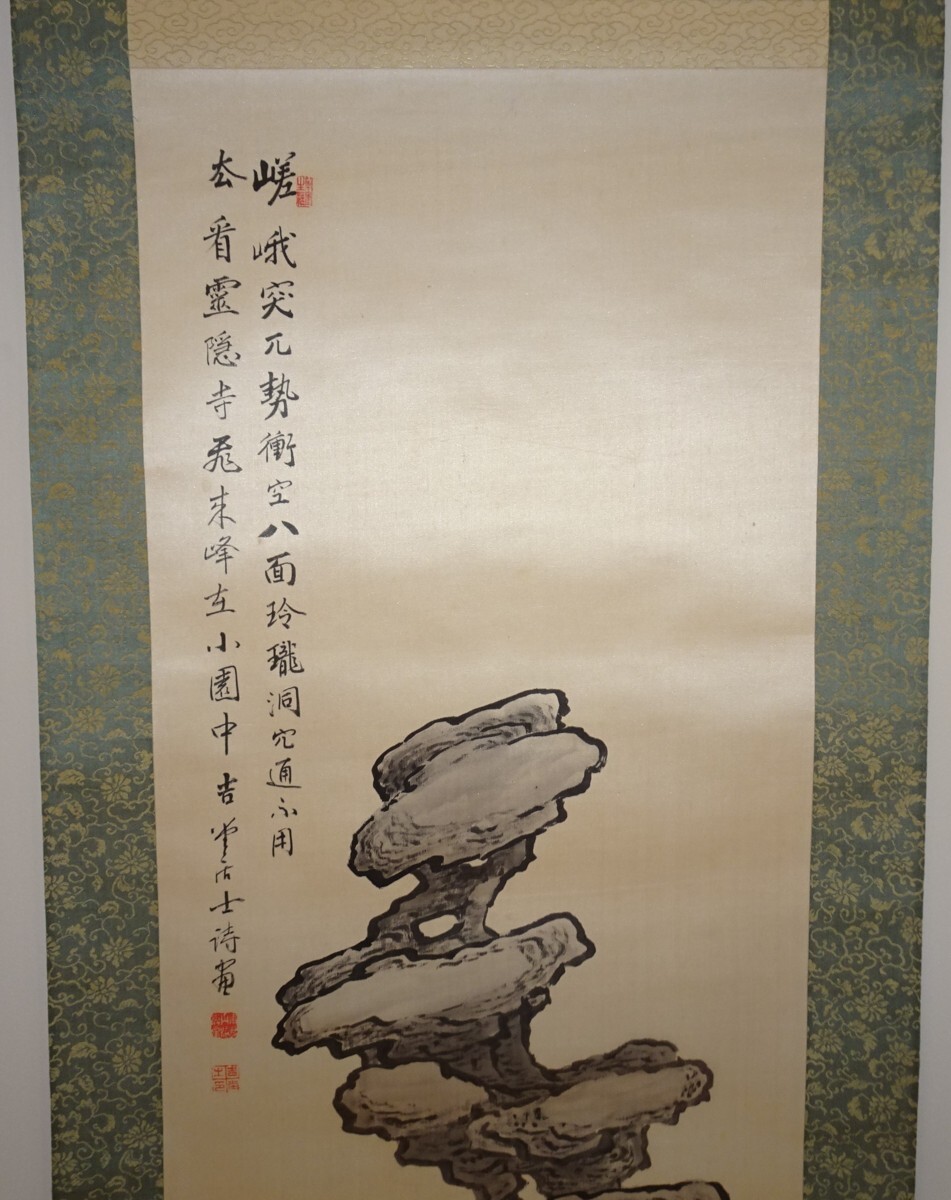 嵯峨突兀勢衝空八面玲瓏洞穴通不用
去看靈隱寺飛来峰在小園中 吉堂居士詩画